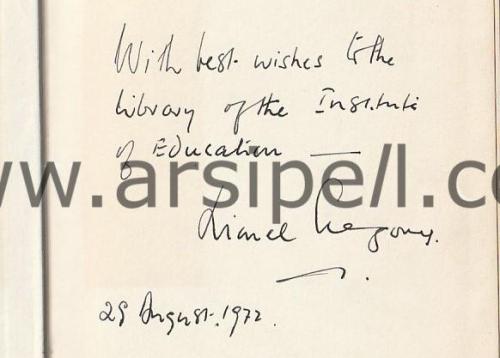 With best wishes to the
Library of the Institute
of Education —
www.arsipell.co
Lionel
29 August. 1972.